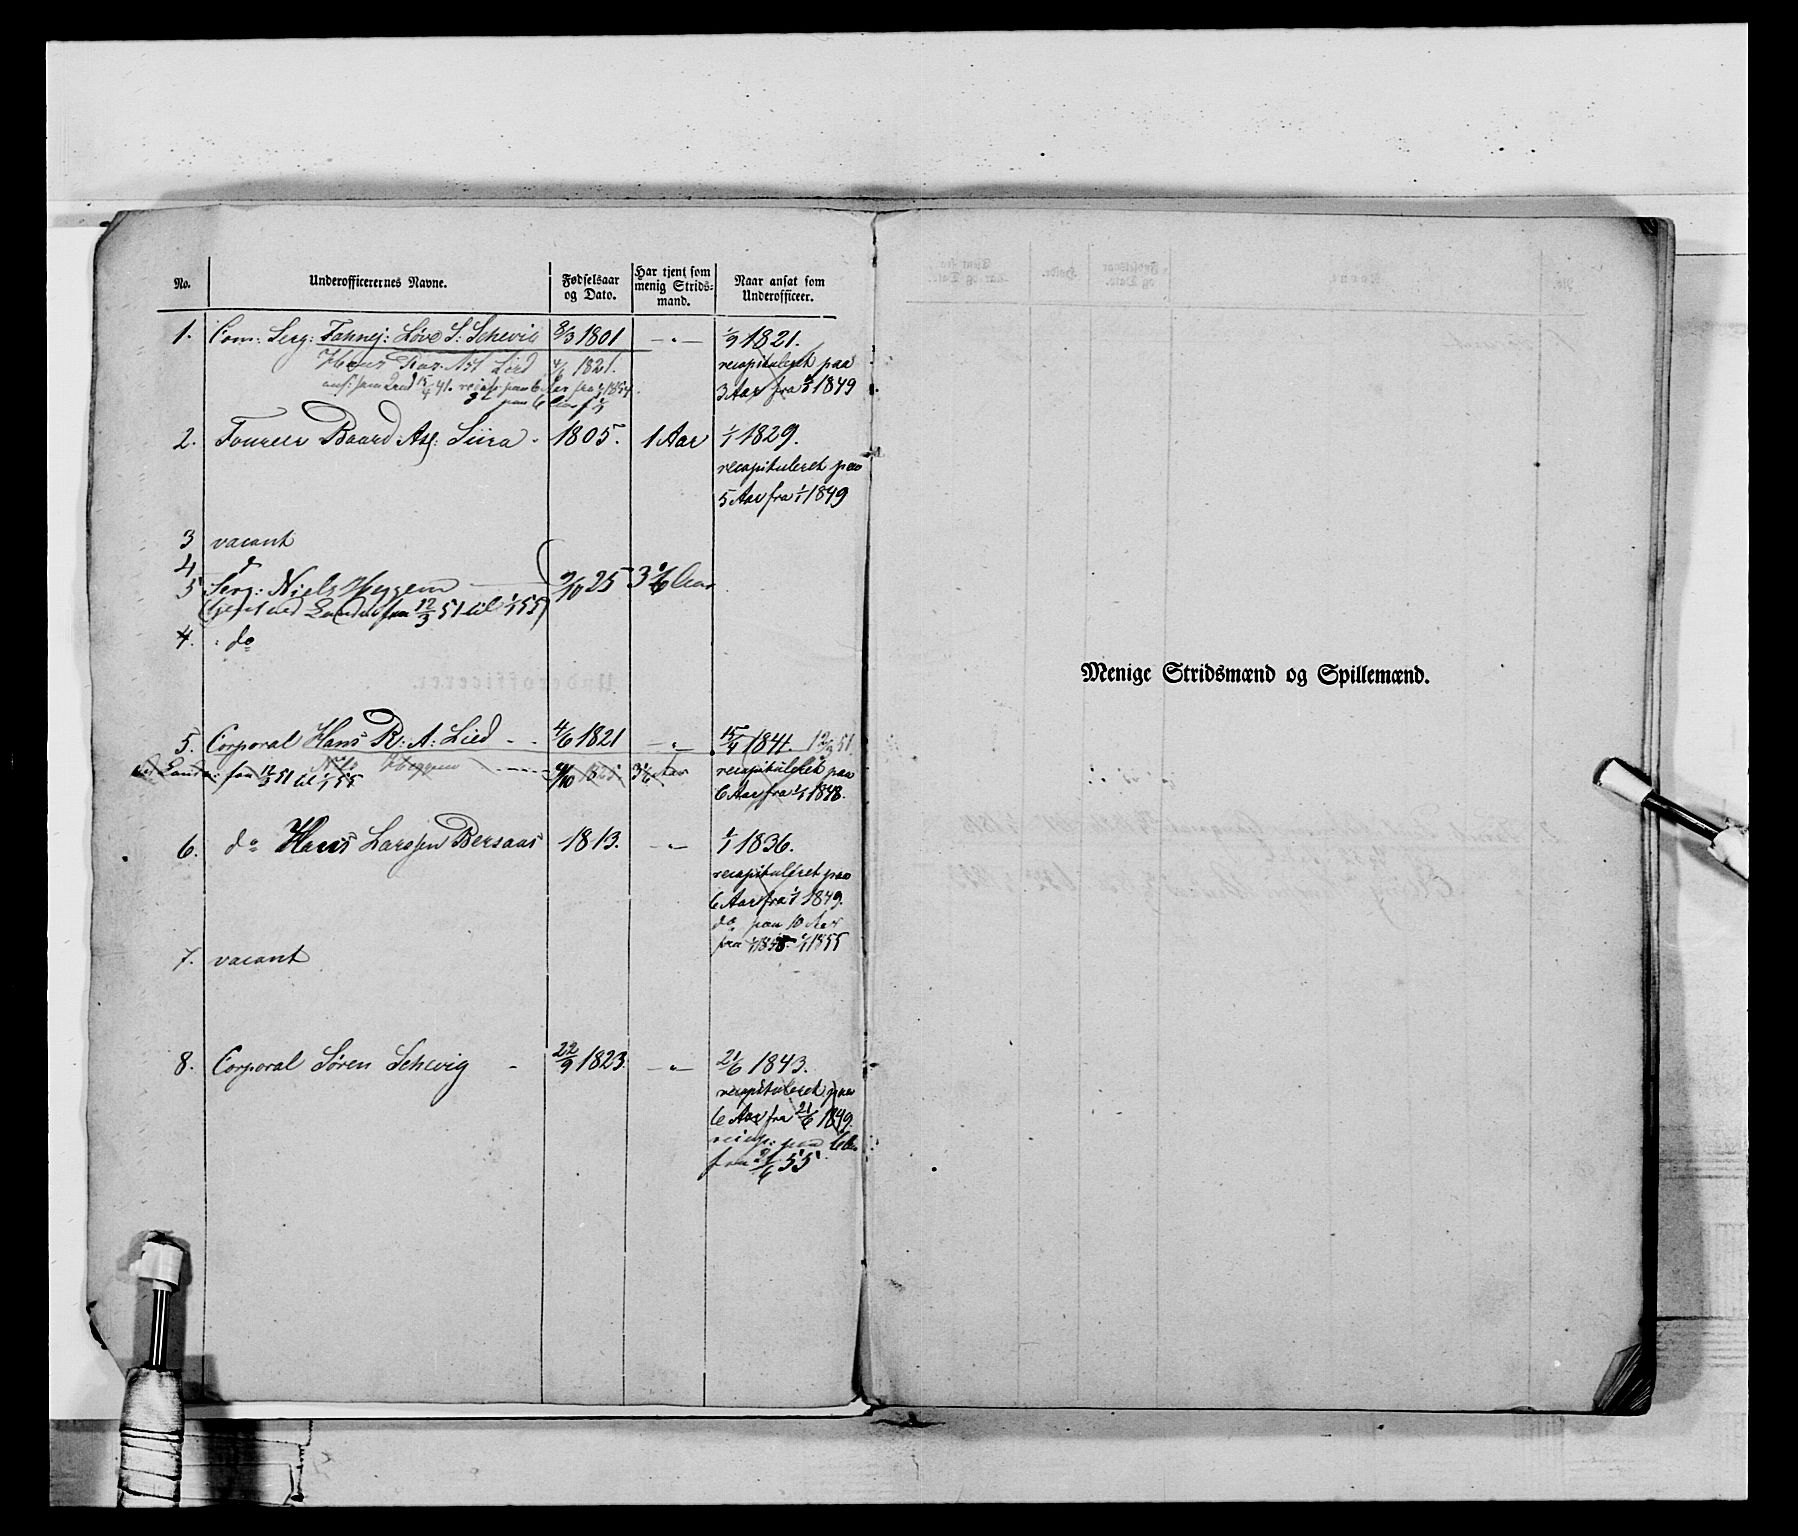 No. Underofficerernes Navne. Fødselsaar og Dato. Har tjent som menig Stridsmand. Naar ansat som Underofficeer.
1. Com: Serg: Fahnej: Løve S: Schevig 8/3 1801 — " — 1/9 1821.
Hans Ras. Ast Lied 4/6 1821. recapituleret paa
3 Aar fra 1/1 1849
2. Foureer Baard Asl: Siira - 1805. 1 Aar 1/1 1829.
recapituleret paa
5 Aar fra 1/1 1849
3 vacant
4 d
5 Serg: Niels Heggem 9/10 25 3 1/6 Aar
fra 12/3 51 til 1/1 55)
4. do
Menige Stridsmænd og Spillemænd.
5. Corporal Hans R: A: Lied - - 4/6 1821 — " — 15/4 1841. 12/3 51.
fra 12/3 51 til 1/1 55 Heggem 9/10 3 1/6 Aar recapituleret paa
6 Aar fra 1/1 1848.
6. do Hans Larssen Bersaas 1813. — " — 1/1 1836.
recapituleret paa
6 Aar fra 1/1 1849.
do paa 10 Aar
fra 1/1 1855
7. vacant
8. Corporal Søren Schevig - 22/9 1823. — " — 21/6 1843.
recapituleret paa
6 Aar fra 21/6 1849.
recap: paa 6 Aar
fra 21/6 55